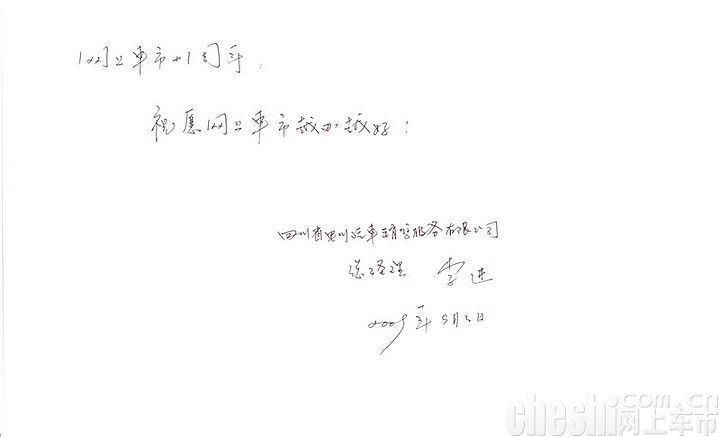 网上车市十周年,
祝愿网上车市越办越好!
四川省 川汽车销售服务有限公司
总经理 李进
2009年5月 日
cheshi.com.cn
网上车市